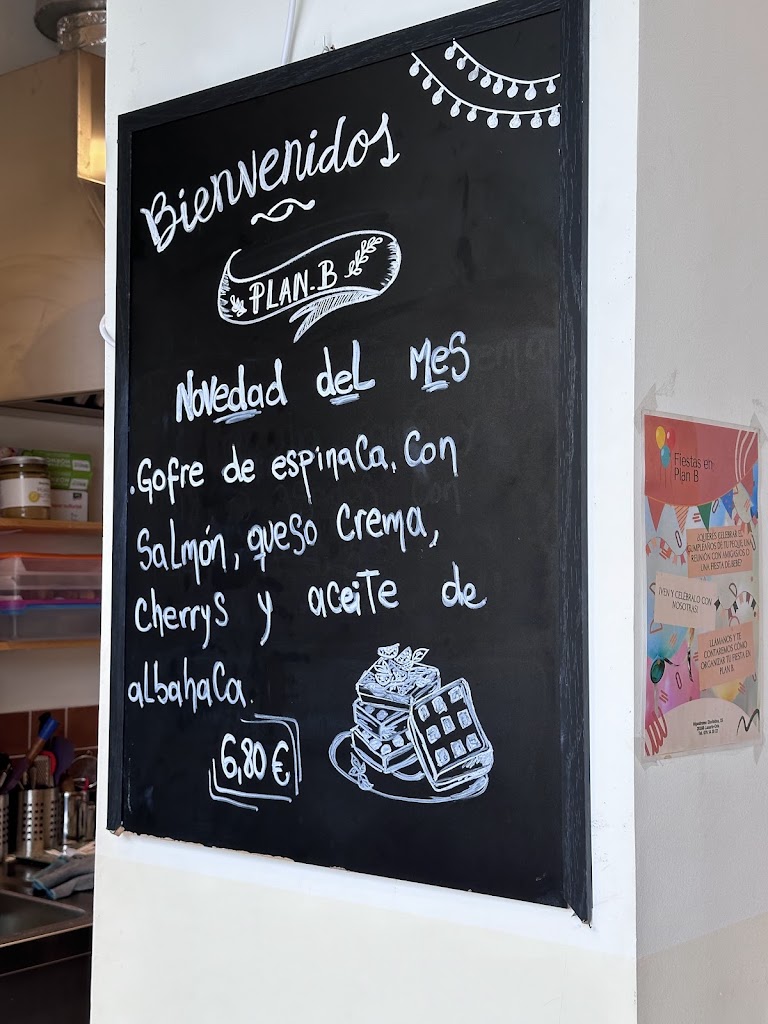 Bienvenidos
PLAN-B
Novedad del Mes
.Gofre de espinaca, con
Salmón, queso crema,
cherrys y aceite de
albahaca.
6,80€
Fiestas en
Plan B
¿QUIERES CELEBRAR EL
CUMPLEAÑOS DE TU PEQUE, UNA
REUNIÓN CON AMIGAS/OS O
UNA FIESTA DE BEBÉ?
¡VEN Y CELÉBRALO CON
NOSOTRAS!
LLÁMANOS Y TE
CONTAREMOS CÓMO
ORGANIZAR TU FIESTA EN
PLAN B.